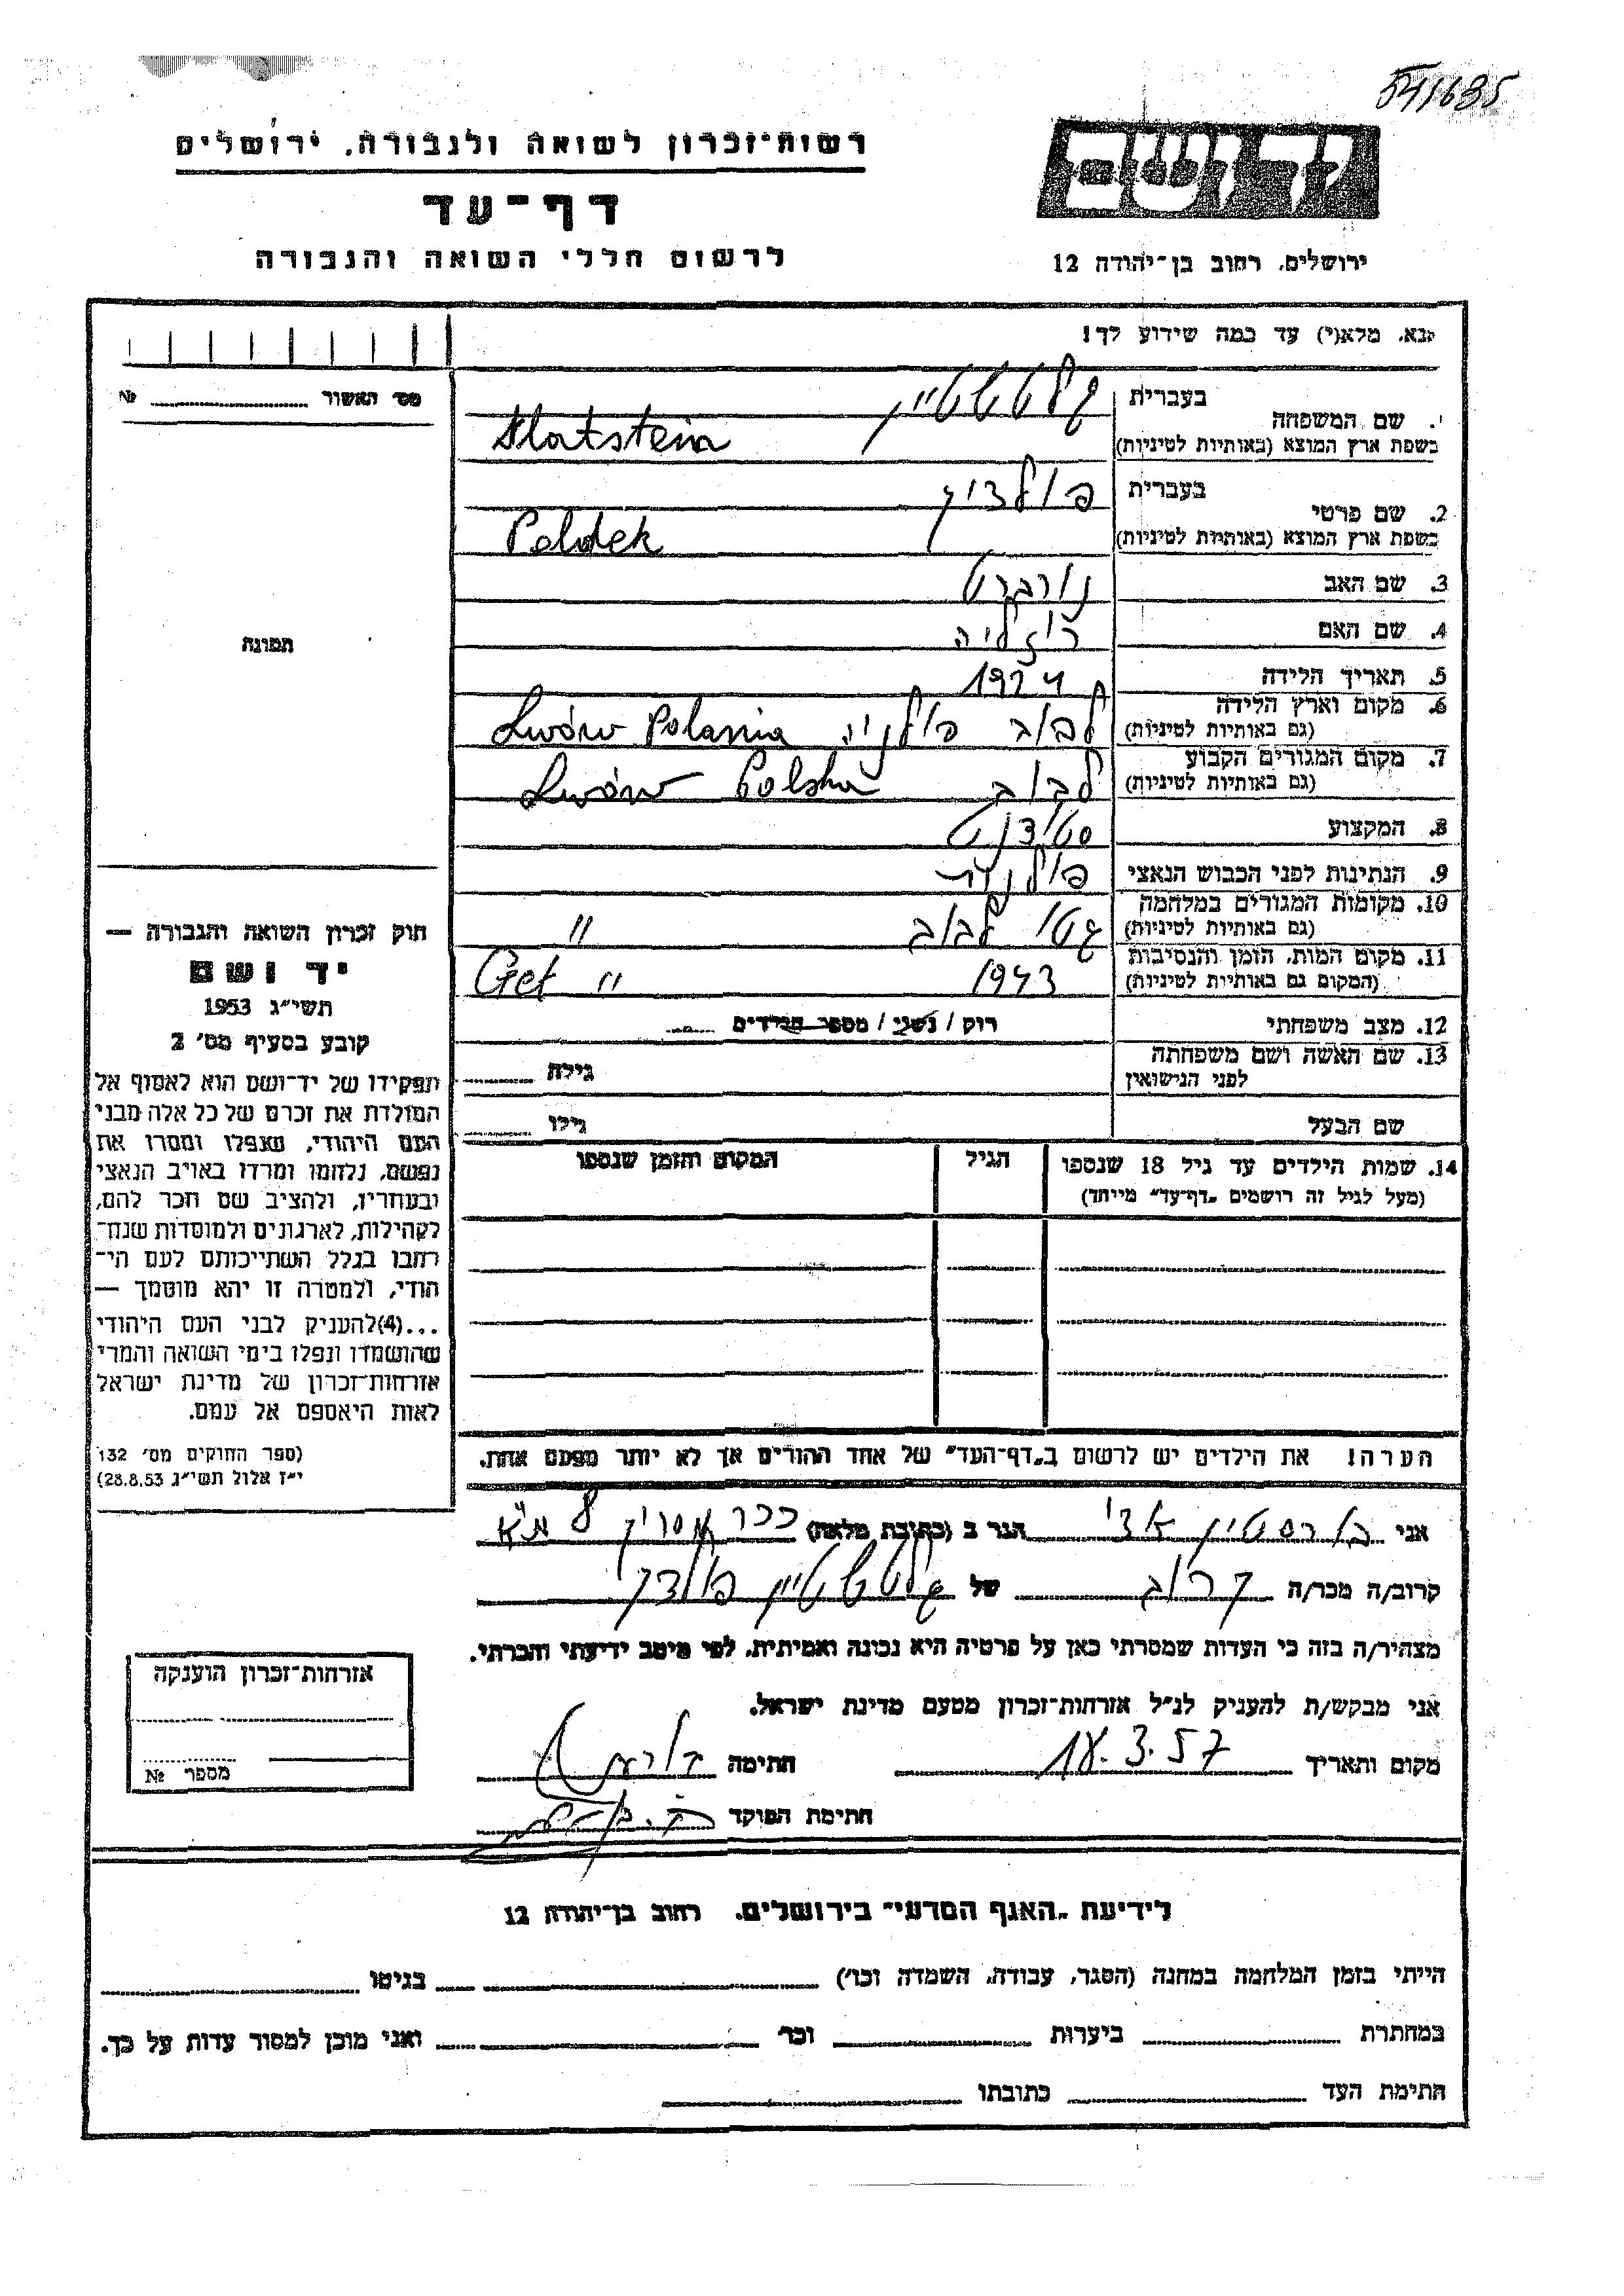 541635
רשות-זכרון לשואה ולגבורה, ירושלים
דף-עד
לרשום חללי השואה והגבורה
יד ושם
ירושלים, רחוב בן-יהודה 12
נא, מלא(י) עד כמה שידוע לך!
מס' האשור № 
1. שם המשפחה
בעברית
בשפת ארץ המוצא (באותיות לטיניות)
2. שם פרטי
בעברית פולדק
בשפת ארץ המוצא (באותיות לטיניות) Poldek
3. שם האב נורברט
4. שם האם רוזליה
5. תאריך הלידה 1924
6. מקום וארץ הלידה
(גם באותיות לטיניות) לבוב פולניה Lwów Polania
7. מקום המגורים הקבוע
(גם באותיות לטיניות) לבוב Lwów Polska
8. המקצוע סטודנט
9. הנתינות לפני הכבוש הנאצי פולנית
10. מקומות המגורים במלחמה
(גם באותיות לטיניות) גטו לבוב "
11. מקום המות, הזמן והנסיבות
(המקום גם באותיות לטיניות) 1943 Get "
12. מצב משפחתי רוק / נשוי / מספר הילדים
13. שם האשה ושם משפחתה
לפני הנישואין גילה
שם הבעל גילו
14. שמות הילדים עד גיל 18 שנספו הגיל המקום והזמן שנספו
(מעל לגיל זה רושמים "דף-עד" מייחד)
הערה! את הילדים יש לרשום ב"דף-העד" של אחד ההורים אך לא יותר מפעם אחת.
תמונה
חוק זכרון השואה והגבורה —
יד ושם
תשי"ג 1953
קובע בסעיף מס' 2
תפקידו של יד-ושם הוא לאסוף אל
המולדת את זכרם של כל אלה מבני
העם היהודי, שנפלו ומסרו את
נפשם, נלחמו ומרדו באויב הנאצי
ובעוזריו, ולהציב שם וזכר להם,
לקהילות, לארגונים ולמוסדות שנח-
רבו בגלל השתייכותם לעם הי-
הודי, ולמטרה זו יהא מוסמך —
...(4)להעניק לבני העם היהודי
שהושמדו ונפלו בימי השואה והמרי
אזרחות-זכרון של מדינת ישראל
לאות היאספם אל עמם.
(ספר החוקים מס' 132
י"ז אלול תשי"ג 28.8.53)
אני הגר ב (כתובת מלאה) ככר
קרוב/ה מכר/ה קרוב של פולדק
מצהיר/ה בזה כי העדות שמסרתי כאן על פרטיה היא נכונה ואמיתית, לפי מיטב ידיעתי והכרתי.
אני מבקש/ת להעניק לנ"ל אזרחות-זכרון מטעם מדינת ישראל.
מקום ותאריך 18.3.57 חתימה
חתימת הפוקד
אזרחות-זכרון הוענקה
מספר №
לידיעת "האגף המדעי" בירושלים, רחוב בן-יהודה 12
הייתי בזמן המלחמה במחנה (הסגר, עבודה, השמדה וכו') בגיטו
במחתרת ביערות וכו' ואני מוכן למסור עדות על כך.
חתימת העד כתובתו